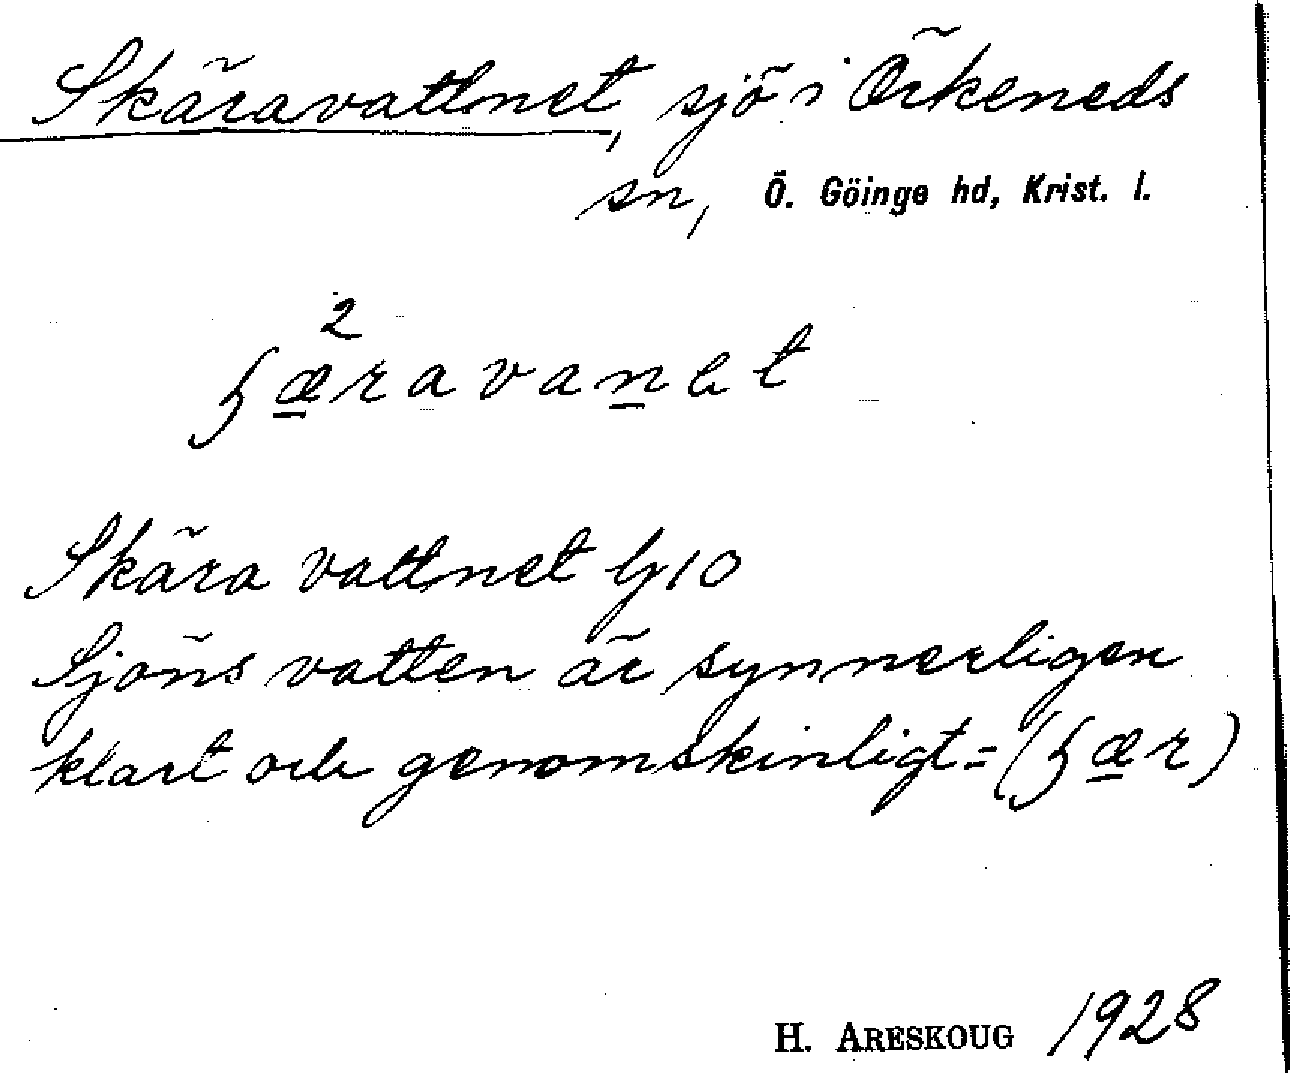 Skäravattnet, sjö i Örkeneds
sn, Ö. Göinge hd, Krist. l.
2
ʂæ̲ravan̲et
Skära vattnet G10
Sjöns vatten är synnerligen
klart och genomskinligt = (ʂæ̲r)
H. ARESKOUG 1928